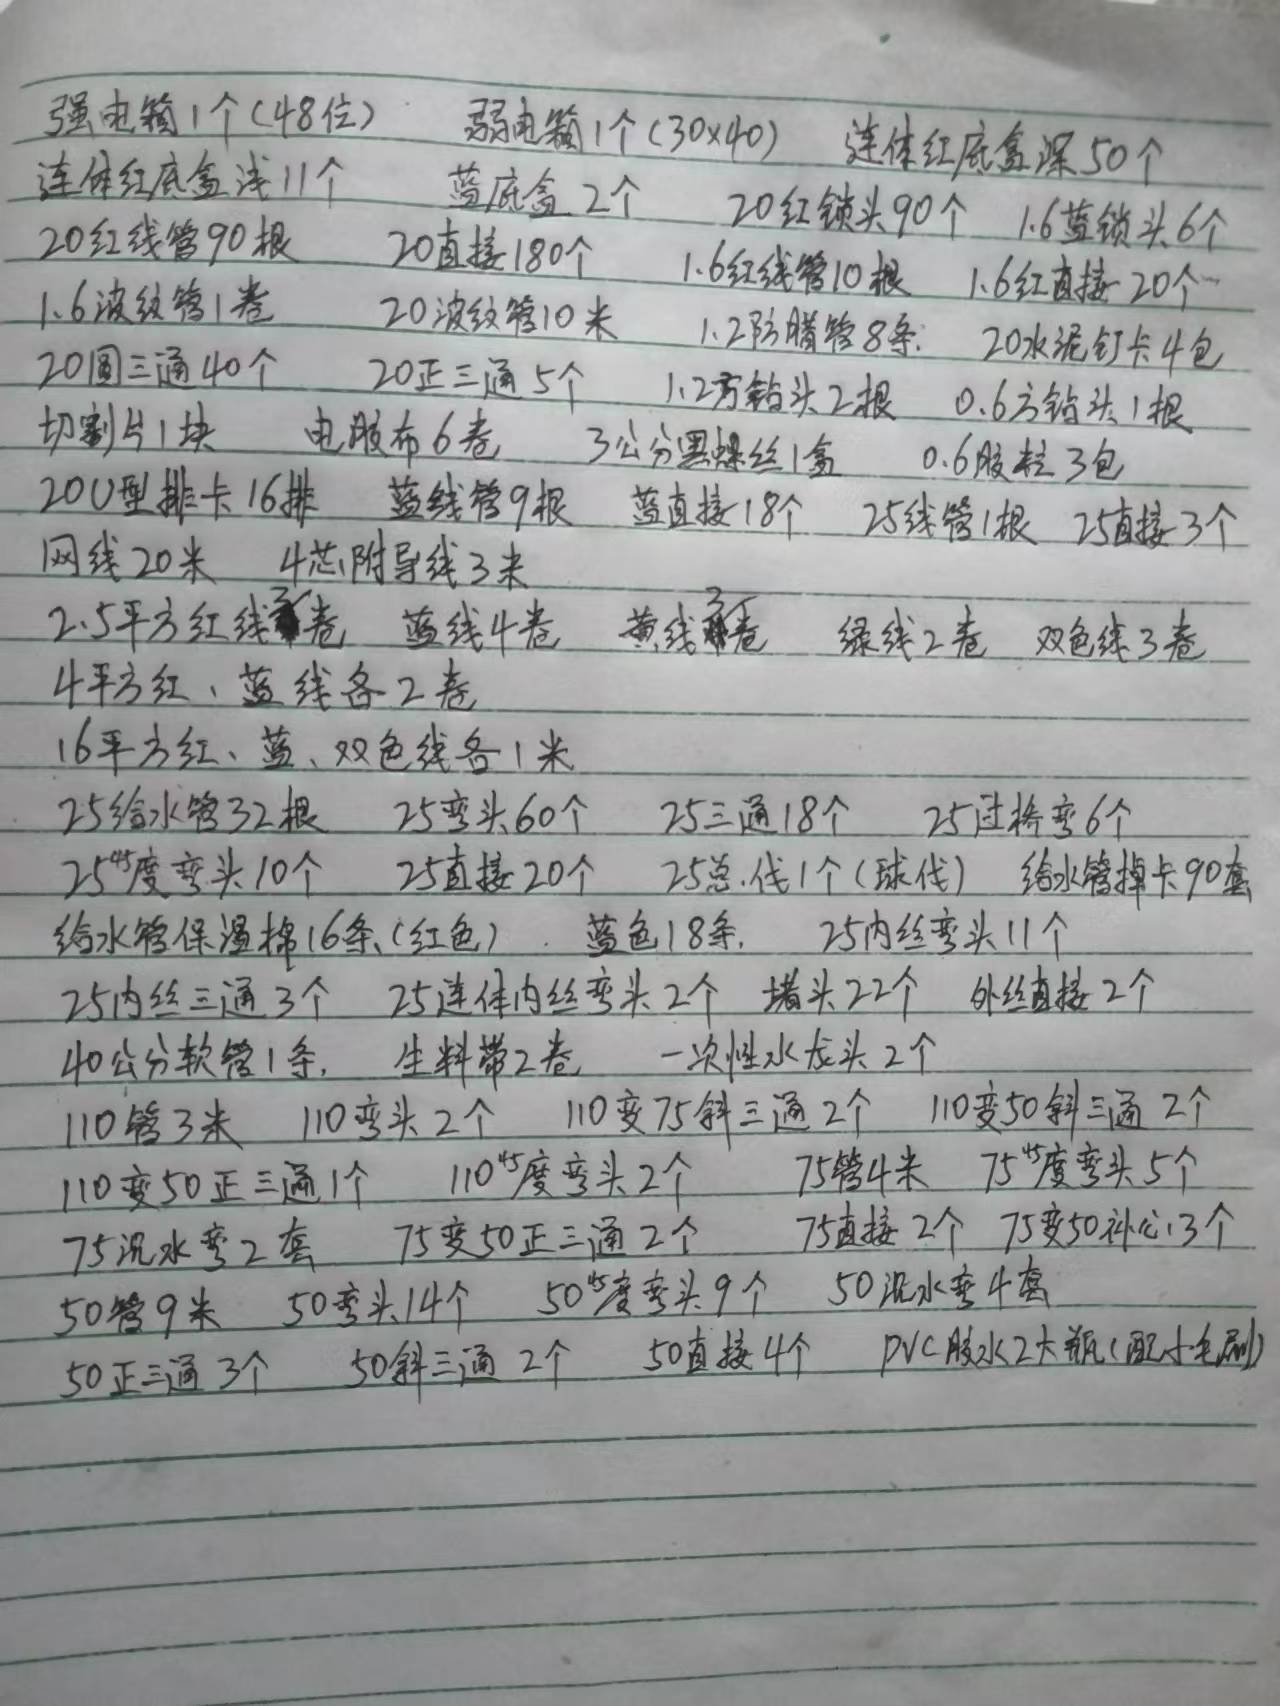 强电箱1个(48位) 弱电箱1个(30×40) 连体红底盒深50个
连体红底盒浅11个 蓝底盒2个 20红锁头90个 1.6蓝锁头6个
20红线管90根 20直接180个 1.6红线管10根 1.6红直接20个
1.6波纹管1卷 20波纹管10米 1.2防腊管8条. 20水泥钉卡4包
20圆三通40个 20正三通5个 1.2方钻头2根 0.6方钻头1根
切割片1块 电胶布6卷 3公分黑螺丝1盒 0.6胶粒3包
20U型排卡16排 蓝线管9根 蓝直接18个 25线管1根 25直接3个
网线20米 4芯附导线3米
2.5平方红线 卷 蓝线4卷 黄线3卷 绿线2卷 双色线3卷
4平方红、蓝线各2卷
16平方红、蓝、双色线各1米
25给水管32根 25弯头60个 25三通18个 25过桥弯6个
25 45度弯头10个 25直接20个 25总伐1个(球伐) 给水管掉卡90套
给水管保温棉16条(红色). 蓝色18条. 25内丝弯头11个
25内丝三通3个 25连体内丝弯头2个 堵头22个 外丝直接2个
40公分软管1条. 生料带2卷 一次性水龙头2个
110管3米 110弯头2个 110变75斜三通2个 110变50斜三通2个
110变50正三通1个 110 45度弯头2个 75管4米 75 45度弯头5个
75沉水弯2套 75变50正三通2个 75直接2个 75变50补心3个
50管9米 50弯头14个 50 45度弯头9个 50沉水弯4套
50正三通3个 50斜三通2个 50直接4个 PVC胶水2大瓶(配小毛刷)